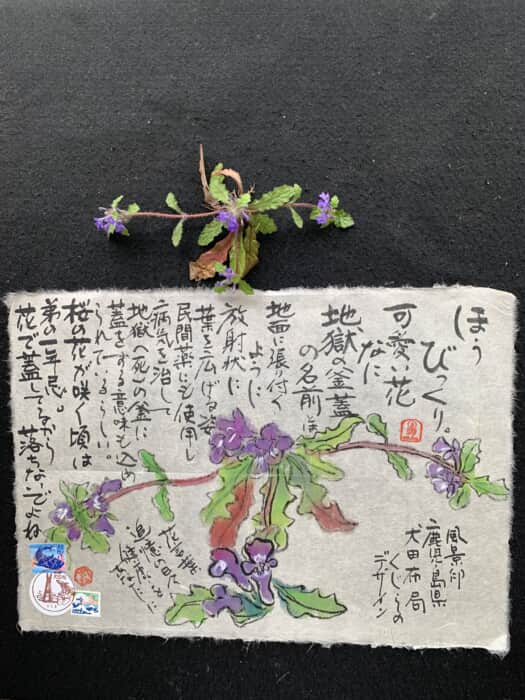 ほぅ
びっくり。
可愛い花
なに
地獄の釜蓋
の名前は
地面に張付く
ように
放射状に
葉を広げる姿
民間薬にも使用し
病気を治して
地獄(死)の釜に
蓋をする意味も込め
られているらしい。
桜の花が咲く頃は
弟の一年忌。
花で蓋してるから
落ちないでよね
追憶の日へ
風景印
鹿児島県
犬田布局
くじらの
デザイン